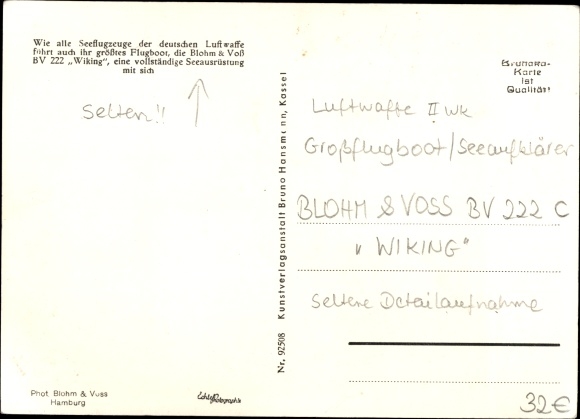 Wie alle Seeflugzeuge der deutschen Luftwaffe
führt auch ihr größtes Flugboot, die Blohm & Voß
BV 222 „Wiking“, eine vollständige Seeausrüstung
mit sich
Selten!!
Phot Blohm & Voss
Hamburg
Echte Photographie
Nr. 92508 Kunstverlagsanstalt Bruno Hansmann, Kassel
Bruhaka-
Karte
ist
Qualität!
Luftwaffe II wk
Großflugboot/Seeaufklärer
BLOHM & VOSS BV 222 C
„WIKING"
Seltene Detailaufnahme
32€